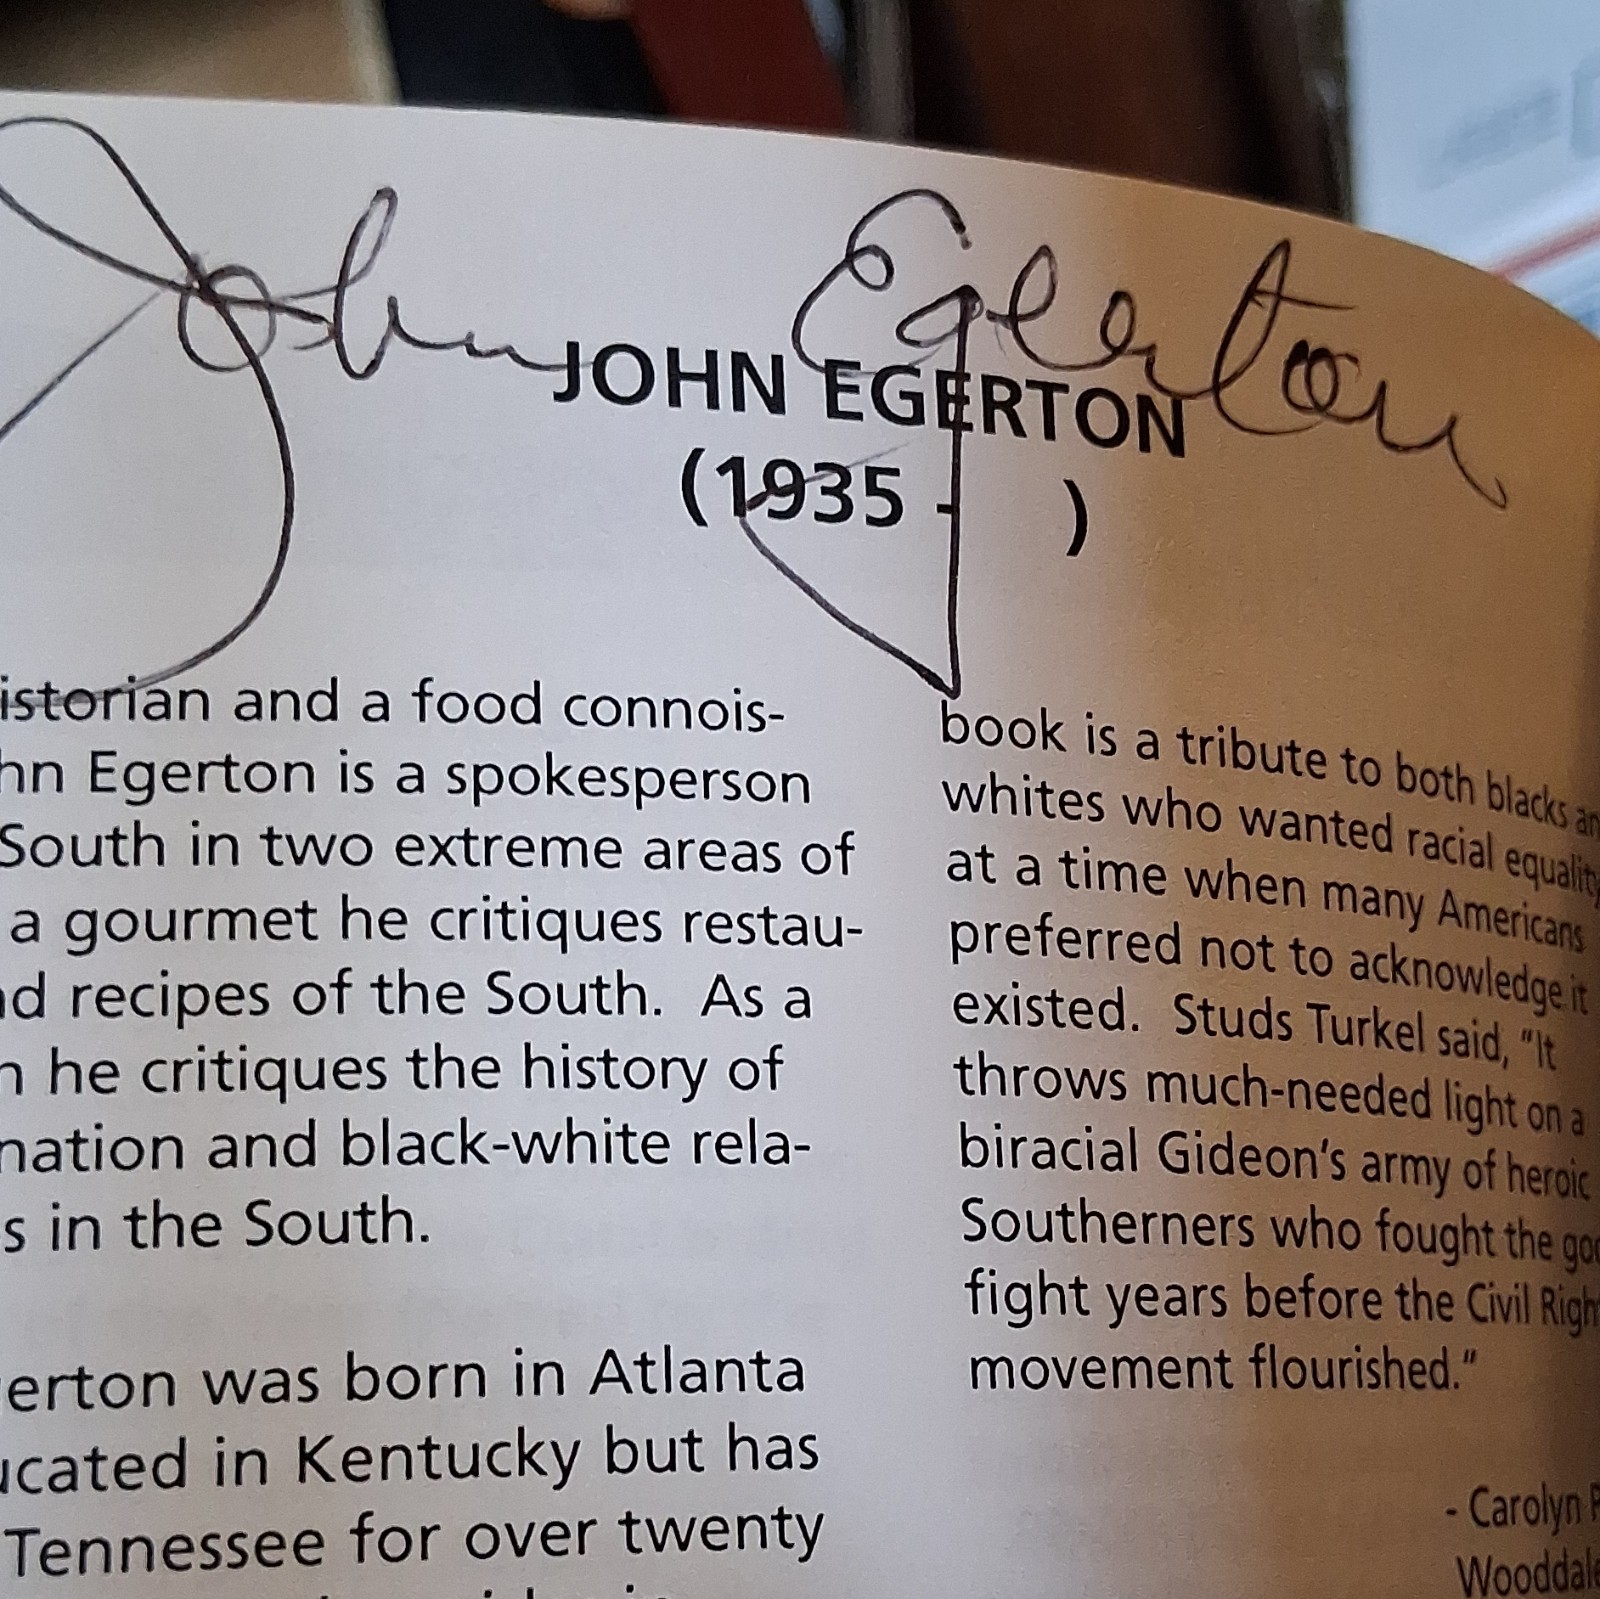 John Egerton
JOHN EGERTON
(1935 - )
istorian and a food connois-
hn Egerton is a spokesperson
South in two extreme areas of
a gourmet he critiques restau-
nd recipes of the South. As a
n he critiques the history of
nation and black-white rela-
s in the South.
erton was born in Atlanta
ucated in Kentucky but has
Tennessee for over twenty
book is a tribute to both blacks an
whites who wanted racial equality
at a time when many Americans
preferred not to acknowledge it
existed. Studs Turkel said, "It
throws much-needed light on a
biracial Gideon's army of heroic
Southerners who fought the goo
fight years before the Civil Righ
movement flourished."
- Carolyn
Wooddale